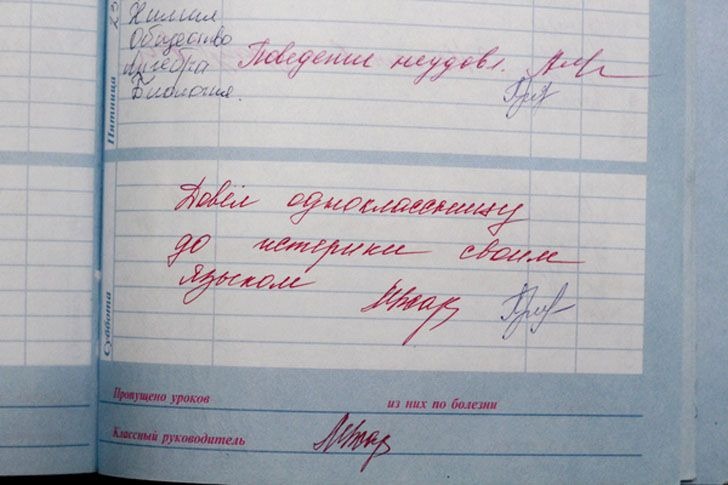 Химия
Общество
Алгебра
Поведение неудовл.
Биология.
Пятница
Довёл одноклассницу
до истерики своим
языком
Суббота
Пропущено уроков из них по болезни
Классный руководитель